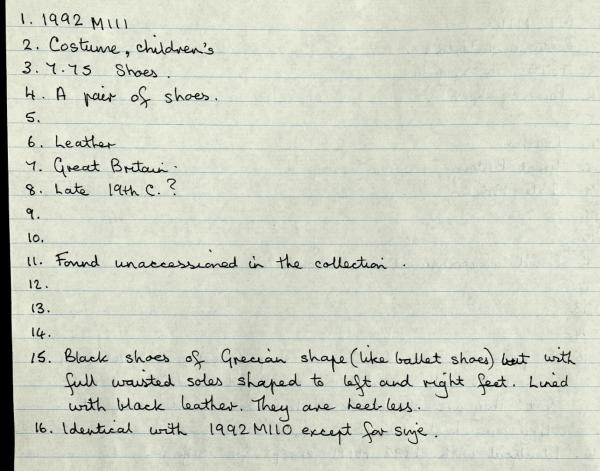 1. 1992 M111
2. Costume, children's
3. 7.75 Shoes.
4. A pair of shoes.
5.
6. Leather
7. Great Britain.
8. Late 19th C.?
9.
10.
11. Found unaccessioned in the collection.
12.
13.
14.
15. Black shoes of Grecian shape (like ballet shoes) but with
full waisted soles shaped to left and right feet. Lined
with black leather. They are heel-less.
16. Identical with 1992 M110 except for size.